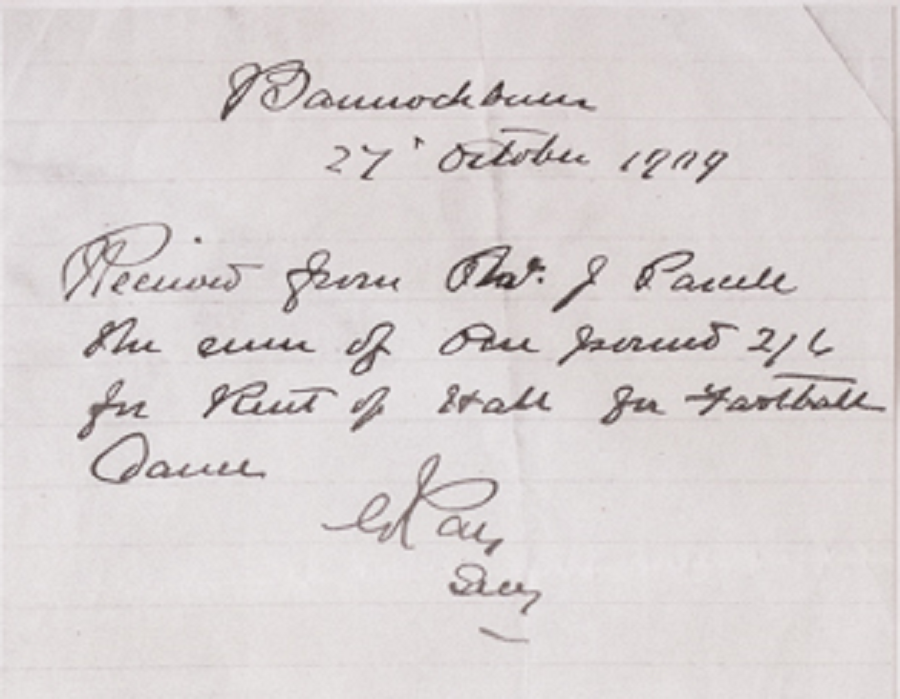 Bannockburn
27' October 1909
Received from J Parcell
the sum of One pound 2/6
for Rent of Hall for Football
Dance
Secy